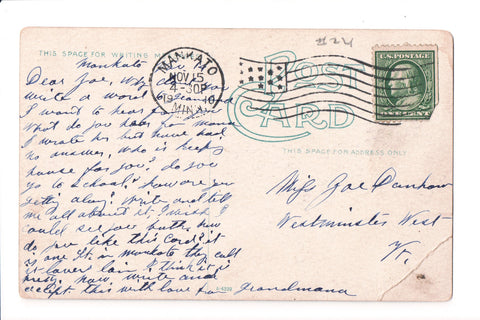 #24
THIS SPACE FOR WRITING
POST
CARD
MANKATO
NOV 15
4-30P
MINN.
U.S. POSTAGE
ONE CENT
THIS SPACE FOR ADDRESS ONLY
Mankato
Dear Zoe, Why
write a word
I want to hear
What do you hear from mama
I wrote her but have had
no answer. Who is keeping
house for you? do you
go to school? how are you
getting along. write and tell
me all about it. I wish I
could see you both, how
do you like this Card? it
is one in Mankato they call
it I think it
pretty. Now write and
accept this with love from Grandmama
Miss Zoe
Westminster West
Vt.